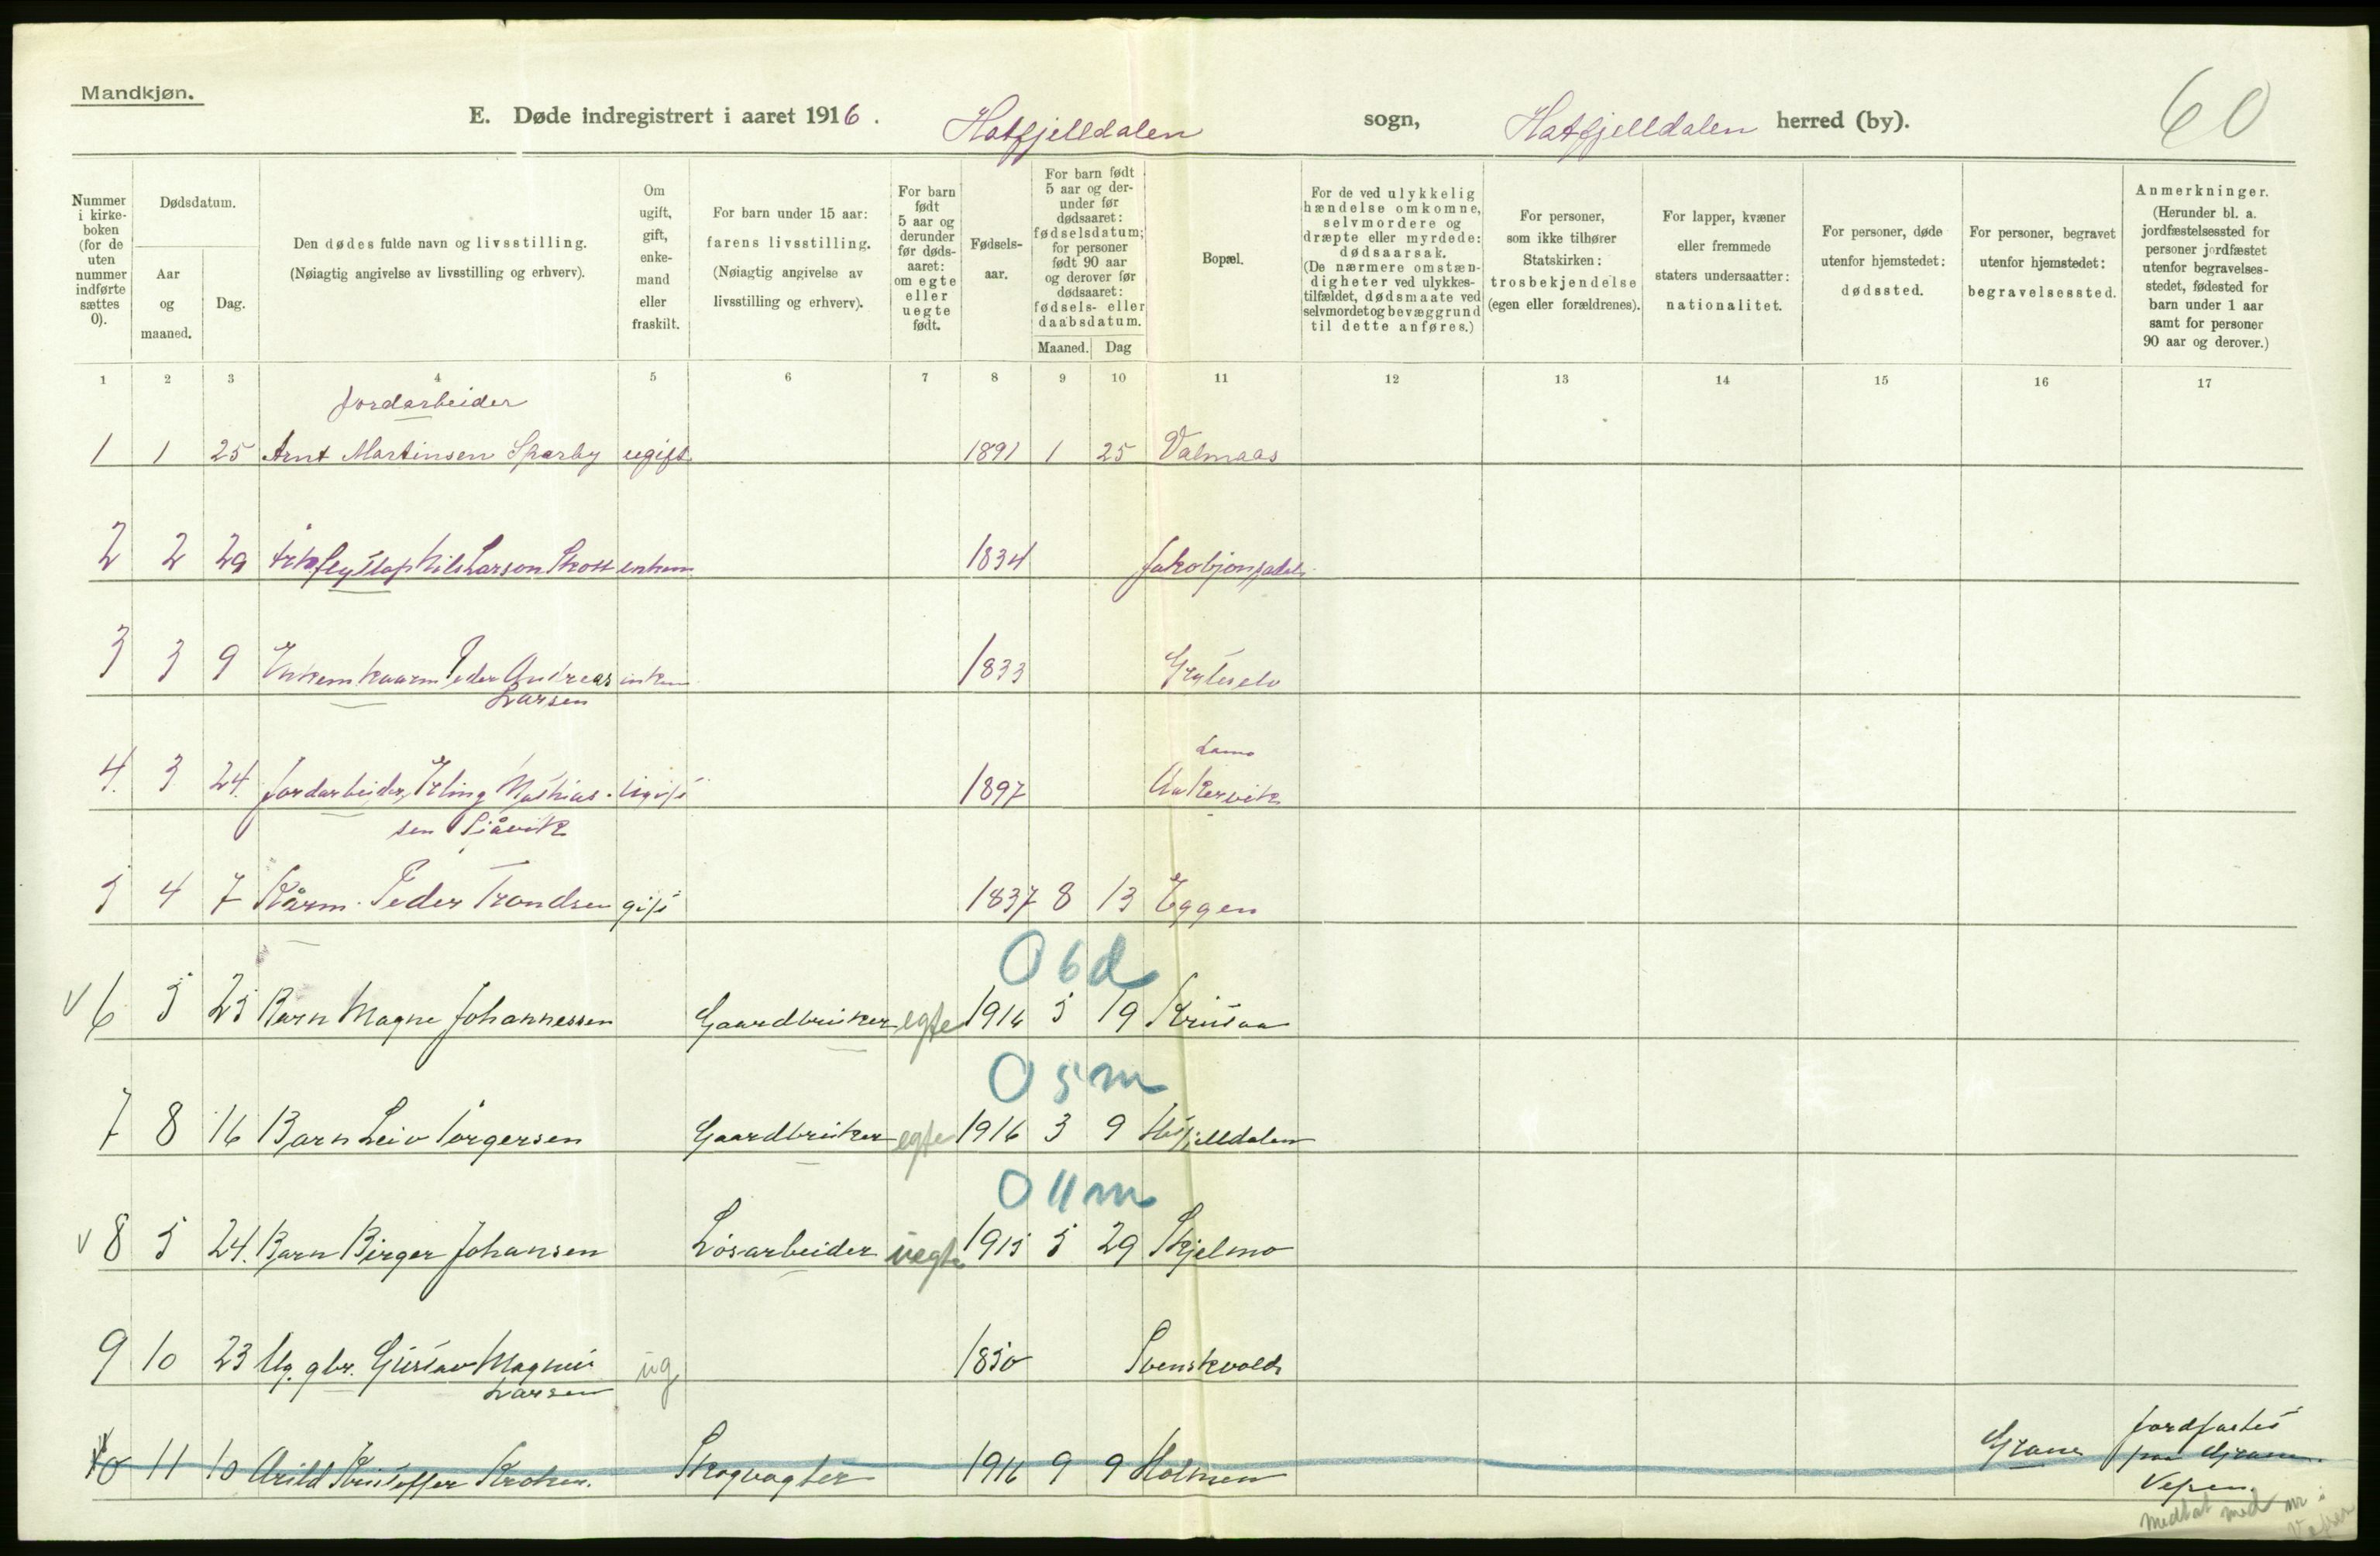 Mandkjøn.
E. Døde indregistrert i aaret 1916. Hatfjelldalen sogn, Hatfjelldalen herred (by).
60
Nummer i kirke- boken (for de uten nummer indførte sættes 0).
Dødsdatum.
Aar og maaned.
Dag.
Den dødes fulde navn og livsstilling.
(Nøiagtig angivelse av livsstilling og erhverv).
Om ugift, gift, enke- mand eller fraskilt.
For barn under 15 aar: farens livsstilling. (Nøiagtig angivelse av livsstilling og erhverv).
For barn født 5 aar og derunder før døds- aaret: om egte eller uegte født.
Fødsels- aar.
For barn født 5 aar og der- under før dødsaaret: fødselsdatum; for personer født 90 aar og derover før dødsaaret: fødsels- eller daabsdatum.
Maaned. Dag
Bopæl.
For de ved ulykkelig hændelse omkomne, selvmordere og dræpte eller myrdede: dødsaarsak. (De nærmere omstæn- digheter ved ulykkes- tilfældet, dødsmaate ved selvmordet og bevæggrund til dette anføres.)
For personer, som ikke tilhører Statskirken: trosbekjendelse (egen eller forældrenes).
For lapper, kvæner eller fremmede staters undersaatter: nationalitet.
For personer, døde utenfor hjemstedet: dødssted.
For personer, begravet utenfor hjemstedet: begravelsessted.
Anmerkninger. (Herunder bl. a. jordfæstelsessted for personer jordfæstet utenfor begravelses- stedet, fødested for barn under 1 aar samt for personer 90 aar og derover.)
1 2 3 4 5 6 7 8 9 10 11 12 13 14 15 16 17
Jordarbeider
1 1 25 Arnt Martinsen Sparby ugift 1891 1 25 Valmaas
2 2 29 Nils Larson enkem 1834
3 3 9 Enkem kaarm Peder Andreas enkem 1833
Larsen
4. 3 24. Jordarbeider, Erling Mathias- ugift 1897 Aakervik
sen Sjåvik
5 4 7 Kårm. Peder Trondsen gift 1837 8 13 Eggen
0 6 d
V 6 5 25 Barn Magne Johannessen Gaardbruker egte 1916 5 19
0 5 m
7 8 16 Barn Leiv Torgersen Gaardbruker egte 1916 3 9 Hatfjelldalen
0 11 m
V 8 5 24. Barn Birger Johansen Løsarbeider uegte 1915 5 29 Skjelmo
9 10 23 Ug. gbr. Gustav Magnus ug 1850 Svenskvold
Larsen
10 11 10 Arild Kristoffer Kroken. Skogvogter 1916 9 9 Holmen Grane Jordfæstet
paa Grane.
Vefsen.
Medtat med nr i
Vefsen